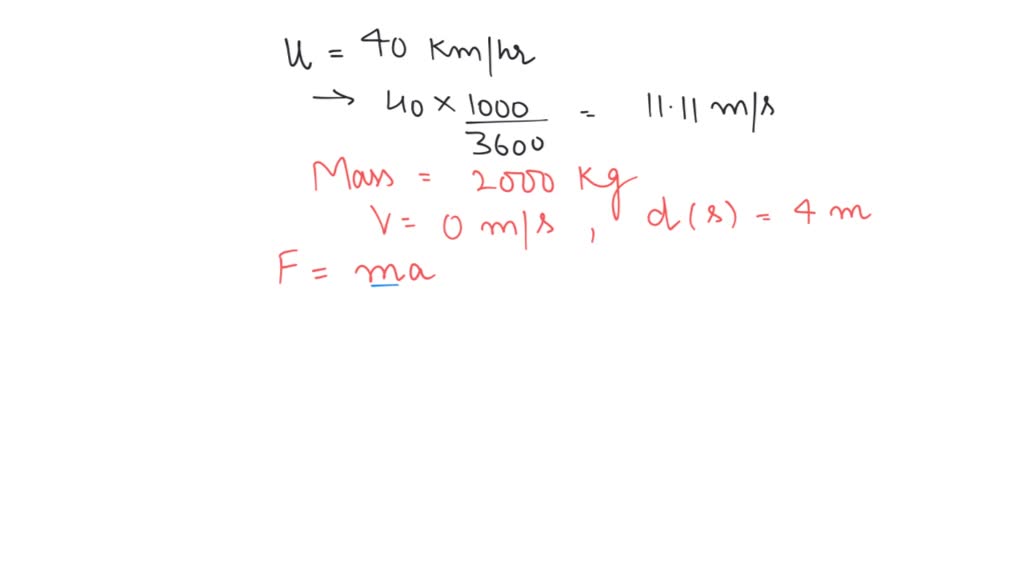 U = 40 Km/hr
→ 40 × 1000/3600 = 11.11 m/s
Mass = 2000 Kg
V = 0 m/s , d(s) = 4 m
F = ma